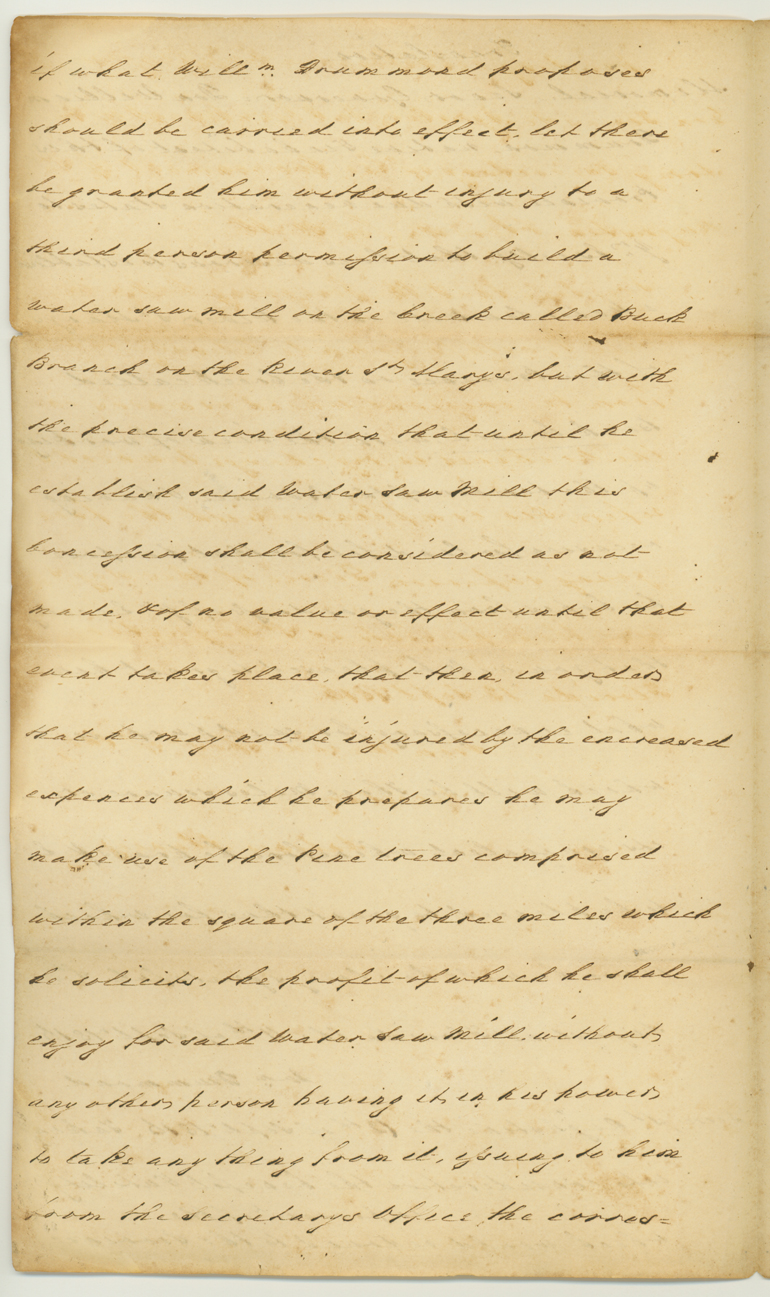 if what Will.m Drummond proposes
should be carried into effect, let there
be granted him without injury to a
third person permission to build a
water saw mill on the Creek called Buck
Branch on the River St. Mary's, but with
the precise condition that until he
establish said Water Saw Mill this
Concession shall be considered as not
made, & of no value or effect until that
event takes place, that then, in order
that he may not be injured by the encreased
expences which he prepares he may
make use of the Pine trees comprised
within the square of the three miles which
he solicits, the profit of which he shall
enjoy for said Water Saw Mill, without
any other person having it in his power
to take any thing from it, issuing to him
from the secretary's Office the corres=